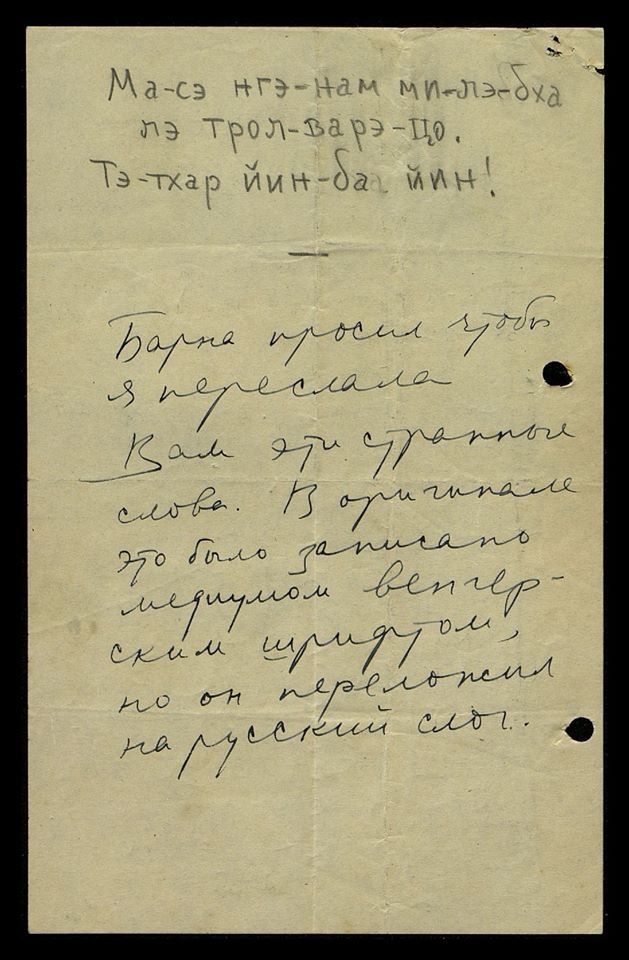 Ма-сэ нгэ-нам ми-лэ-бха
лэ трол-варэ-Цо.
Тэ-тхар йин-ба йин!
Барна просил чтобы
я переслала
Вам эти странные
слова. В оригинале
это было записано
медиумом венгер-
ским шрифтом,
но он переложил
на русский слог.